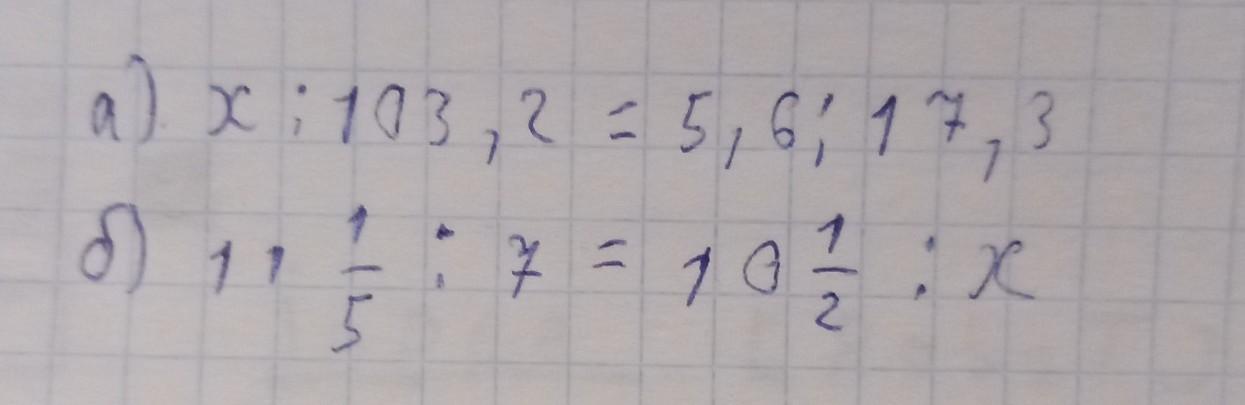 а) x : 103,2 = 5,6 : 17,3
б) 11 1/5 : 7 = 10 1/2 : x